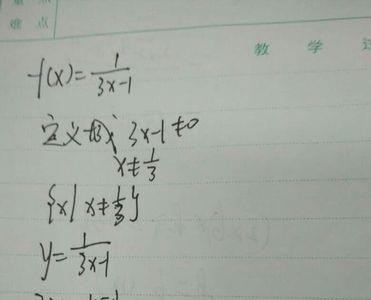 难 点
教 学 过
f(x)=1/(3x-1)
定义域 3x-1≠0
x≠1/3
{x|x≠1/3}
y=1/(3x-1)